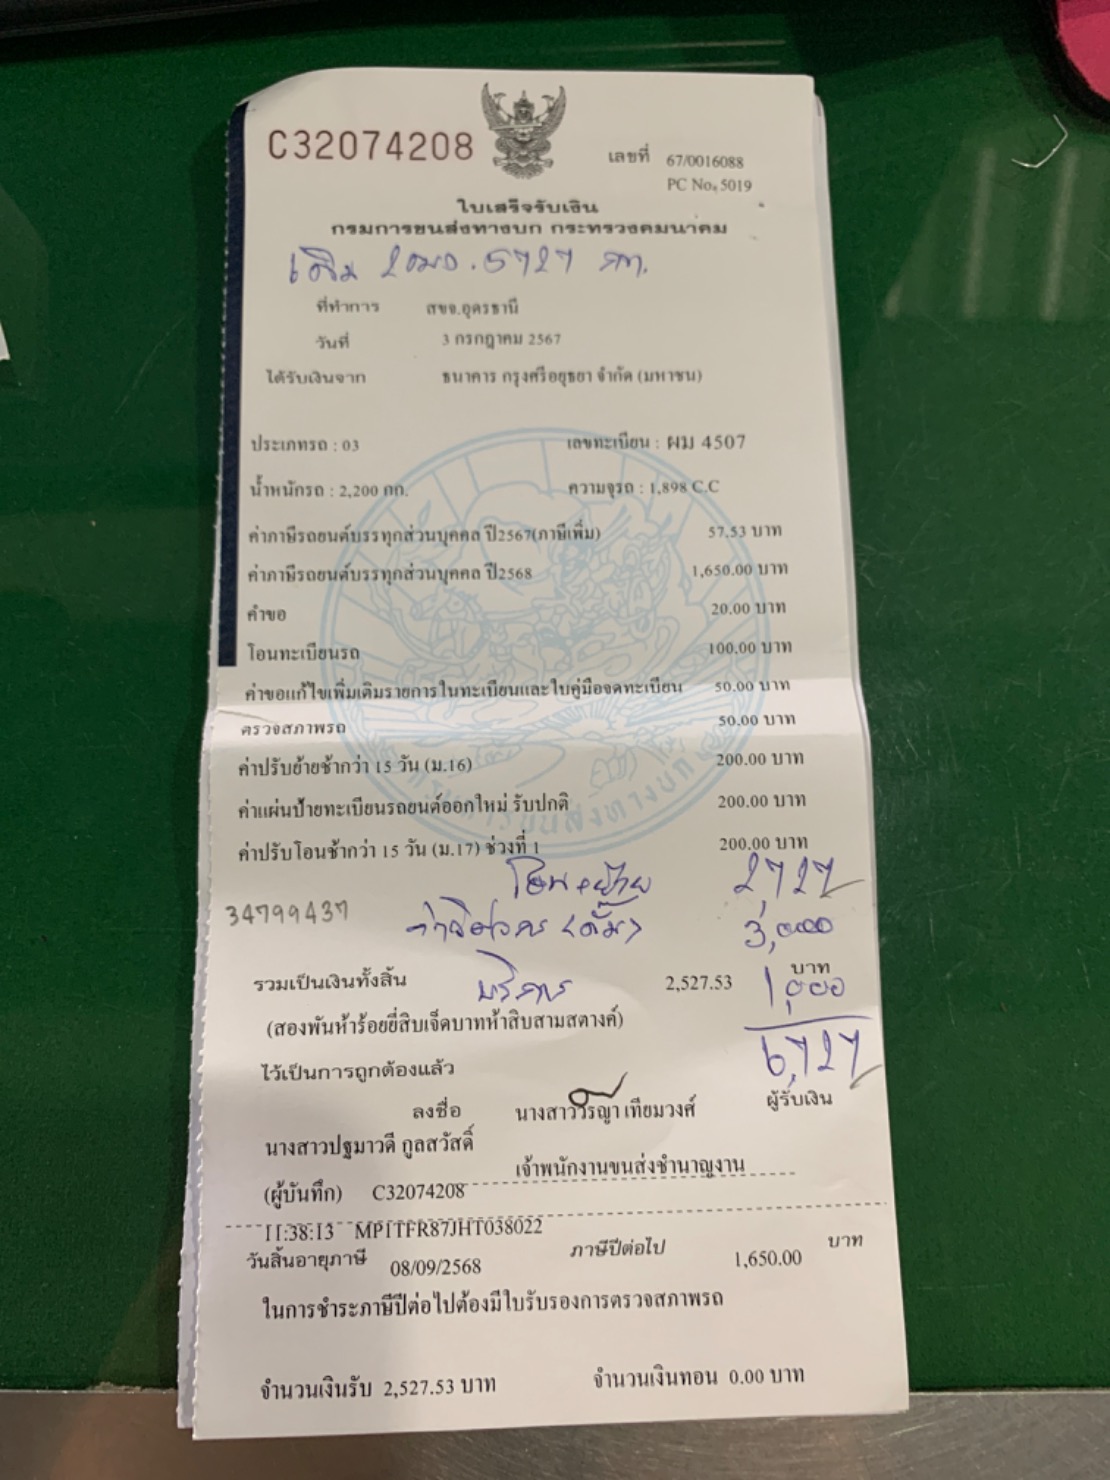 C32074208
เลขที่ 67/0016088
PC No. 5019
ใบเสร็จรับเงิน
กรมการขนส่งทางบก กระทรวงคมนาคม
เดิม 5727 กท.
ที่ทำการ สขจ.อุดรธานี
วันที่ 3 กรกฎาคม 2567
ได้รับเงินจาก ธนาคาร กรุงศรีอยุธยา จำกัด (มหาชน)
ประเภทรถ : 03 เลขทะเบียน : ผม 4507
น้ำหนักรถ : 2,200 กก. ความจุรถ : 1,898 C.C
ค่าภาษีรถยนต์บรรทุกส่วนบุคคล ปี2567(ภาษีเพิ่ม) 57.53 บาท
ค่าภาษีรถยนต์บรรทุกส่วนบุคคล ปี2568 1,650.00 บาท
คำขอ 20.00 บาท
โอนทะเบียนรถ 100.00 บาท
ค่าขอแก้ไขเพิ่มเติมรายการในทะเบียนและใบคู่มือจดทะเบียน 50.00 บาท
ตรวจสภาพรถ 50.00 บาท
ค่าปรับย้ายช้ากว่า 15 วัน (ม.16) 200.00 บาท
ค่าแผ่นป้ายทะเบียนรถยนต์ออกใหม่ รับปกติ 200.00 บาท
ค่าปรับโอนช้ากว่า 15 วัน (ม.17) ช่วงที่ 1 200.00 บาท
กรมการขนส่งทางบก
โอน+ย้าย 2,727
34799437
3,000
รวมเป็นเงินทั้งสิ้น 2,527.53 บาท
บริการ 1,000
(สองพันห้าร้อยยี่สิบเจ็ดบาทห้าสิบสามสตางค์)
6,727
ไว้เป็นการถูกต้องแล้ว
ลงชื่อ นางสาววิรญา เทียมวงศ์ ผู้รับเงิน
นางสาวปฐมาวดี กูลสวัสดิ์
เจ้าพนักงานขนส่งชำนาญงาน
(ผู้บันทึก) C32074208
11:38:13 MP1TFR87JHT038022
วันสิ้นอายุภาษี 08/09/2568 ภาษีปีต่อไป 1,650.00 บาท
ในการชำระภาษีปีต่อไปต้องมีใบรับรองการตรวจสภาพรถ
จำนวนเงินรับ 2,527.53 บาท จำนวนเงินทอน 0.00 บาท